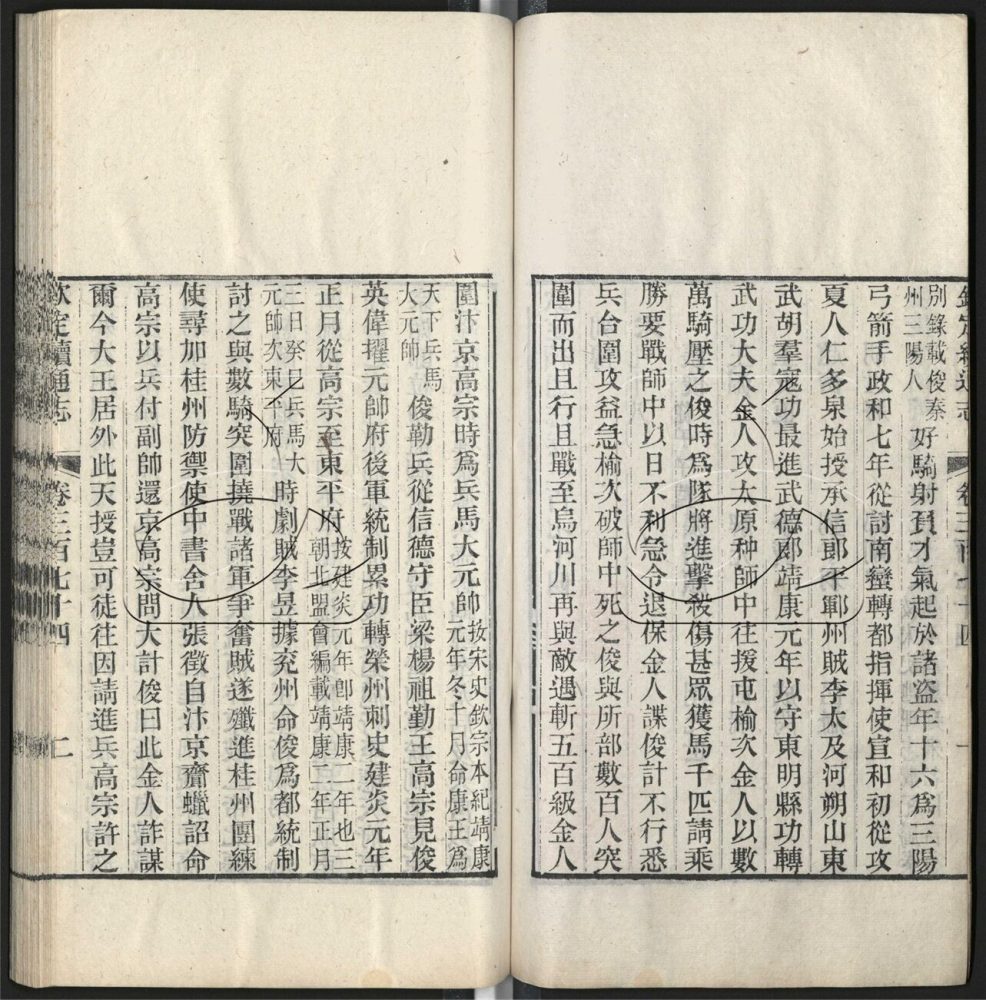 別錄載俊秦
州三陽人
好騎射負才氣起於諸盜年十六爲三陽
弓箭手政和七年從討南蠻轉都指揮使宣和初從攻
夏人仁多泉始授承信郎平鄆州賊李太及河朔山東
武胡羣寇功最進武德郎靖康元年以守東明縣功轉
武功大夫金人攻太原种師中往援屯榆次金人以數
萬騎壓之俊時爲隊將進擊殺傷甚眾獲馬千匹請乘
勝要戰師中以日不利急令退保金人諜俊計不行悉
兵合圍攻益急榆次破師中死之俊與所部數百人突
圍而出且行且戰至烏河川再與敵遇斬五百級金人
圍汴京高宗時爲兵馬大元帥
按宋史欽宗本紀靖康
元年冬十月命康王爲
天下兵馬
大元帥
俊勒兵從信德守臣梁楊祖勤王高宗見俊
英偉擢元帥府後軍統制累功轉榮州刺史建炎元年
正月從高宗至東平府
按建炎元年卽靖康二年也三
朝北盟會編載靖康二年正月
三日癸巳兵馬大
元帥次東平府
時劇賊李昱據兗州命俊爲都統制
討之與數騎突圍撓戰諸軍爭奮賊遂殲進桂州團練
使尋加桂州防禦使中書舍人張徵自汴京齎蠟詔命
高宗以兵付副帥還京高宗問大計俊曰此金人詐謀
爾今大王居外此天授豈可徒往因請進兵高宗許之
欽定續通志
卷三百七十四
二